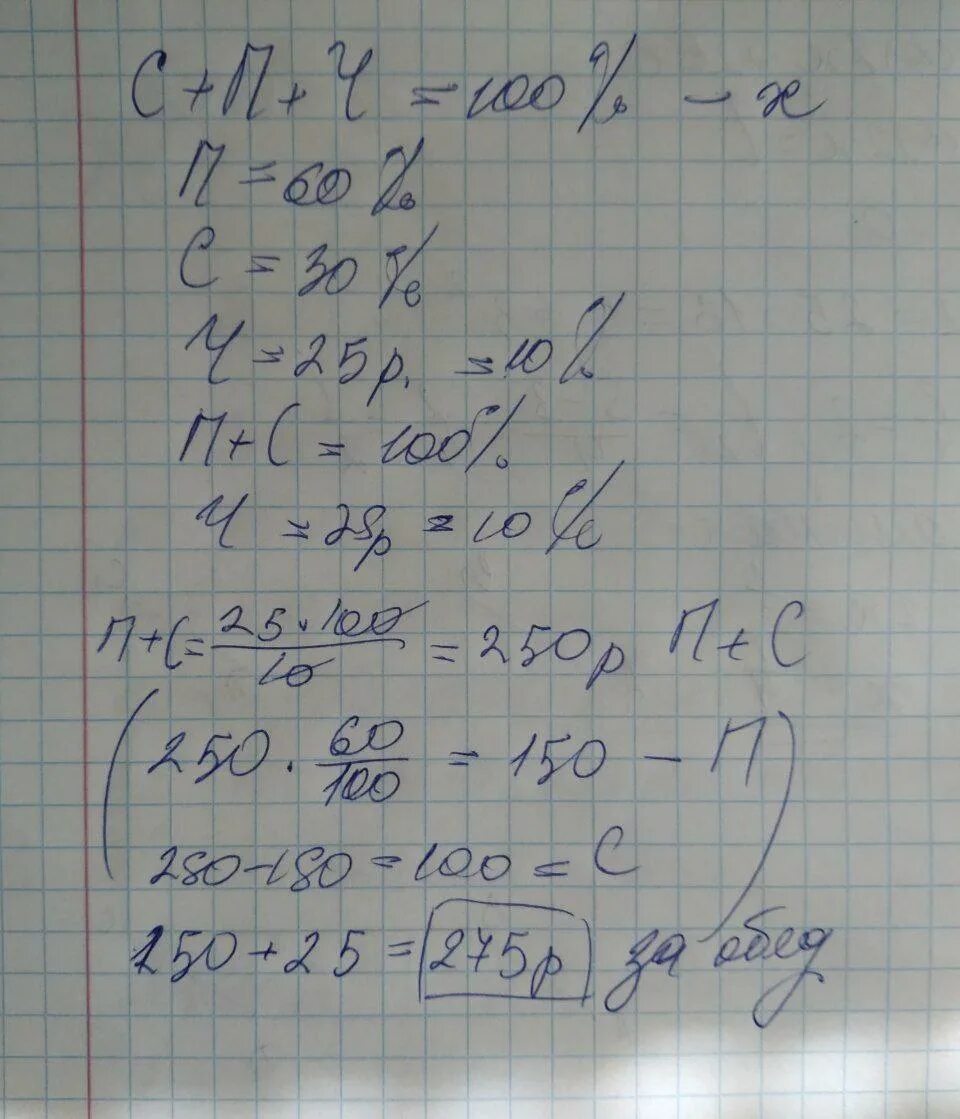 С+П+Ч = 100% - х
П = 60%
С = 30%
Ч = 25р. = 10%
П+С = 100%
Ч = 25р = 10%
П+С= 25·100/10 = 250р П+С
(250 · 60/100 = 150 - П
250-150 = 100 = С)
250+25 = 275р за обед